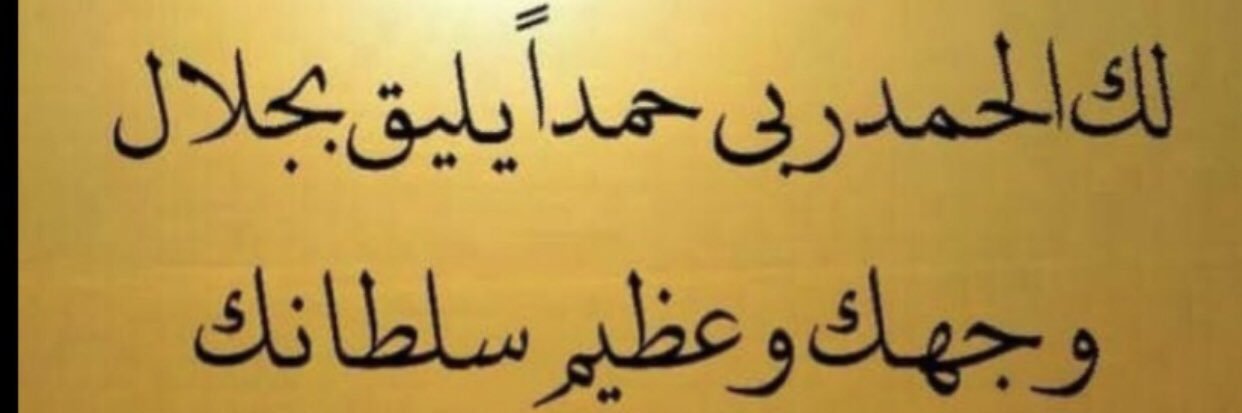 لك الحمد ربى حمداً يليق بجلال
وجهك وعظيم سلطانك